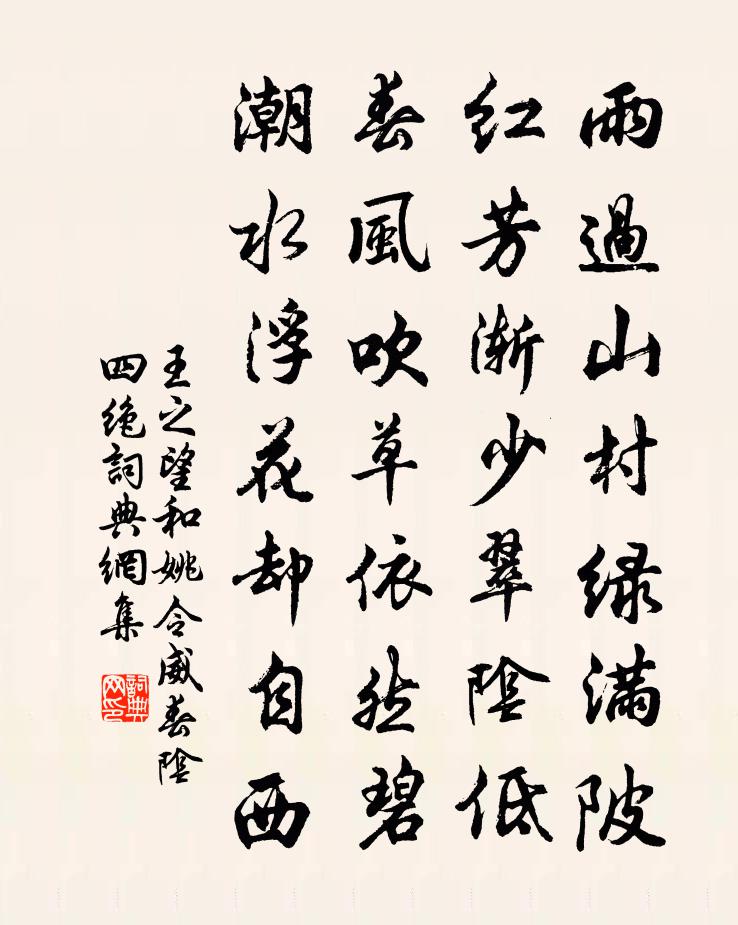 雨過山村綠滿陂
紅芳漸少翠陰低
春風吹草依然碧
潮水浮花却自西
王之望和姚令威春陰
四絕詞典網集
詞典
网印